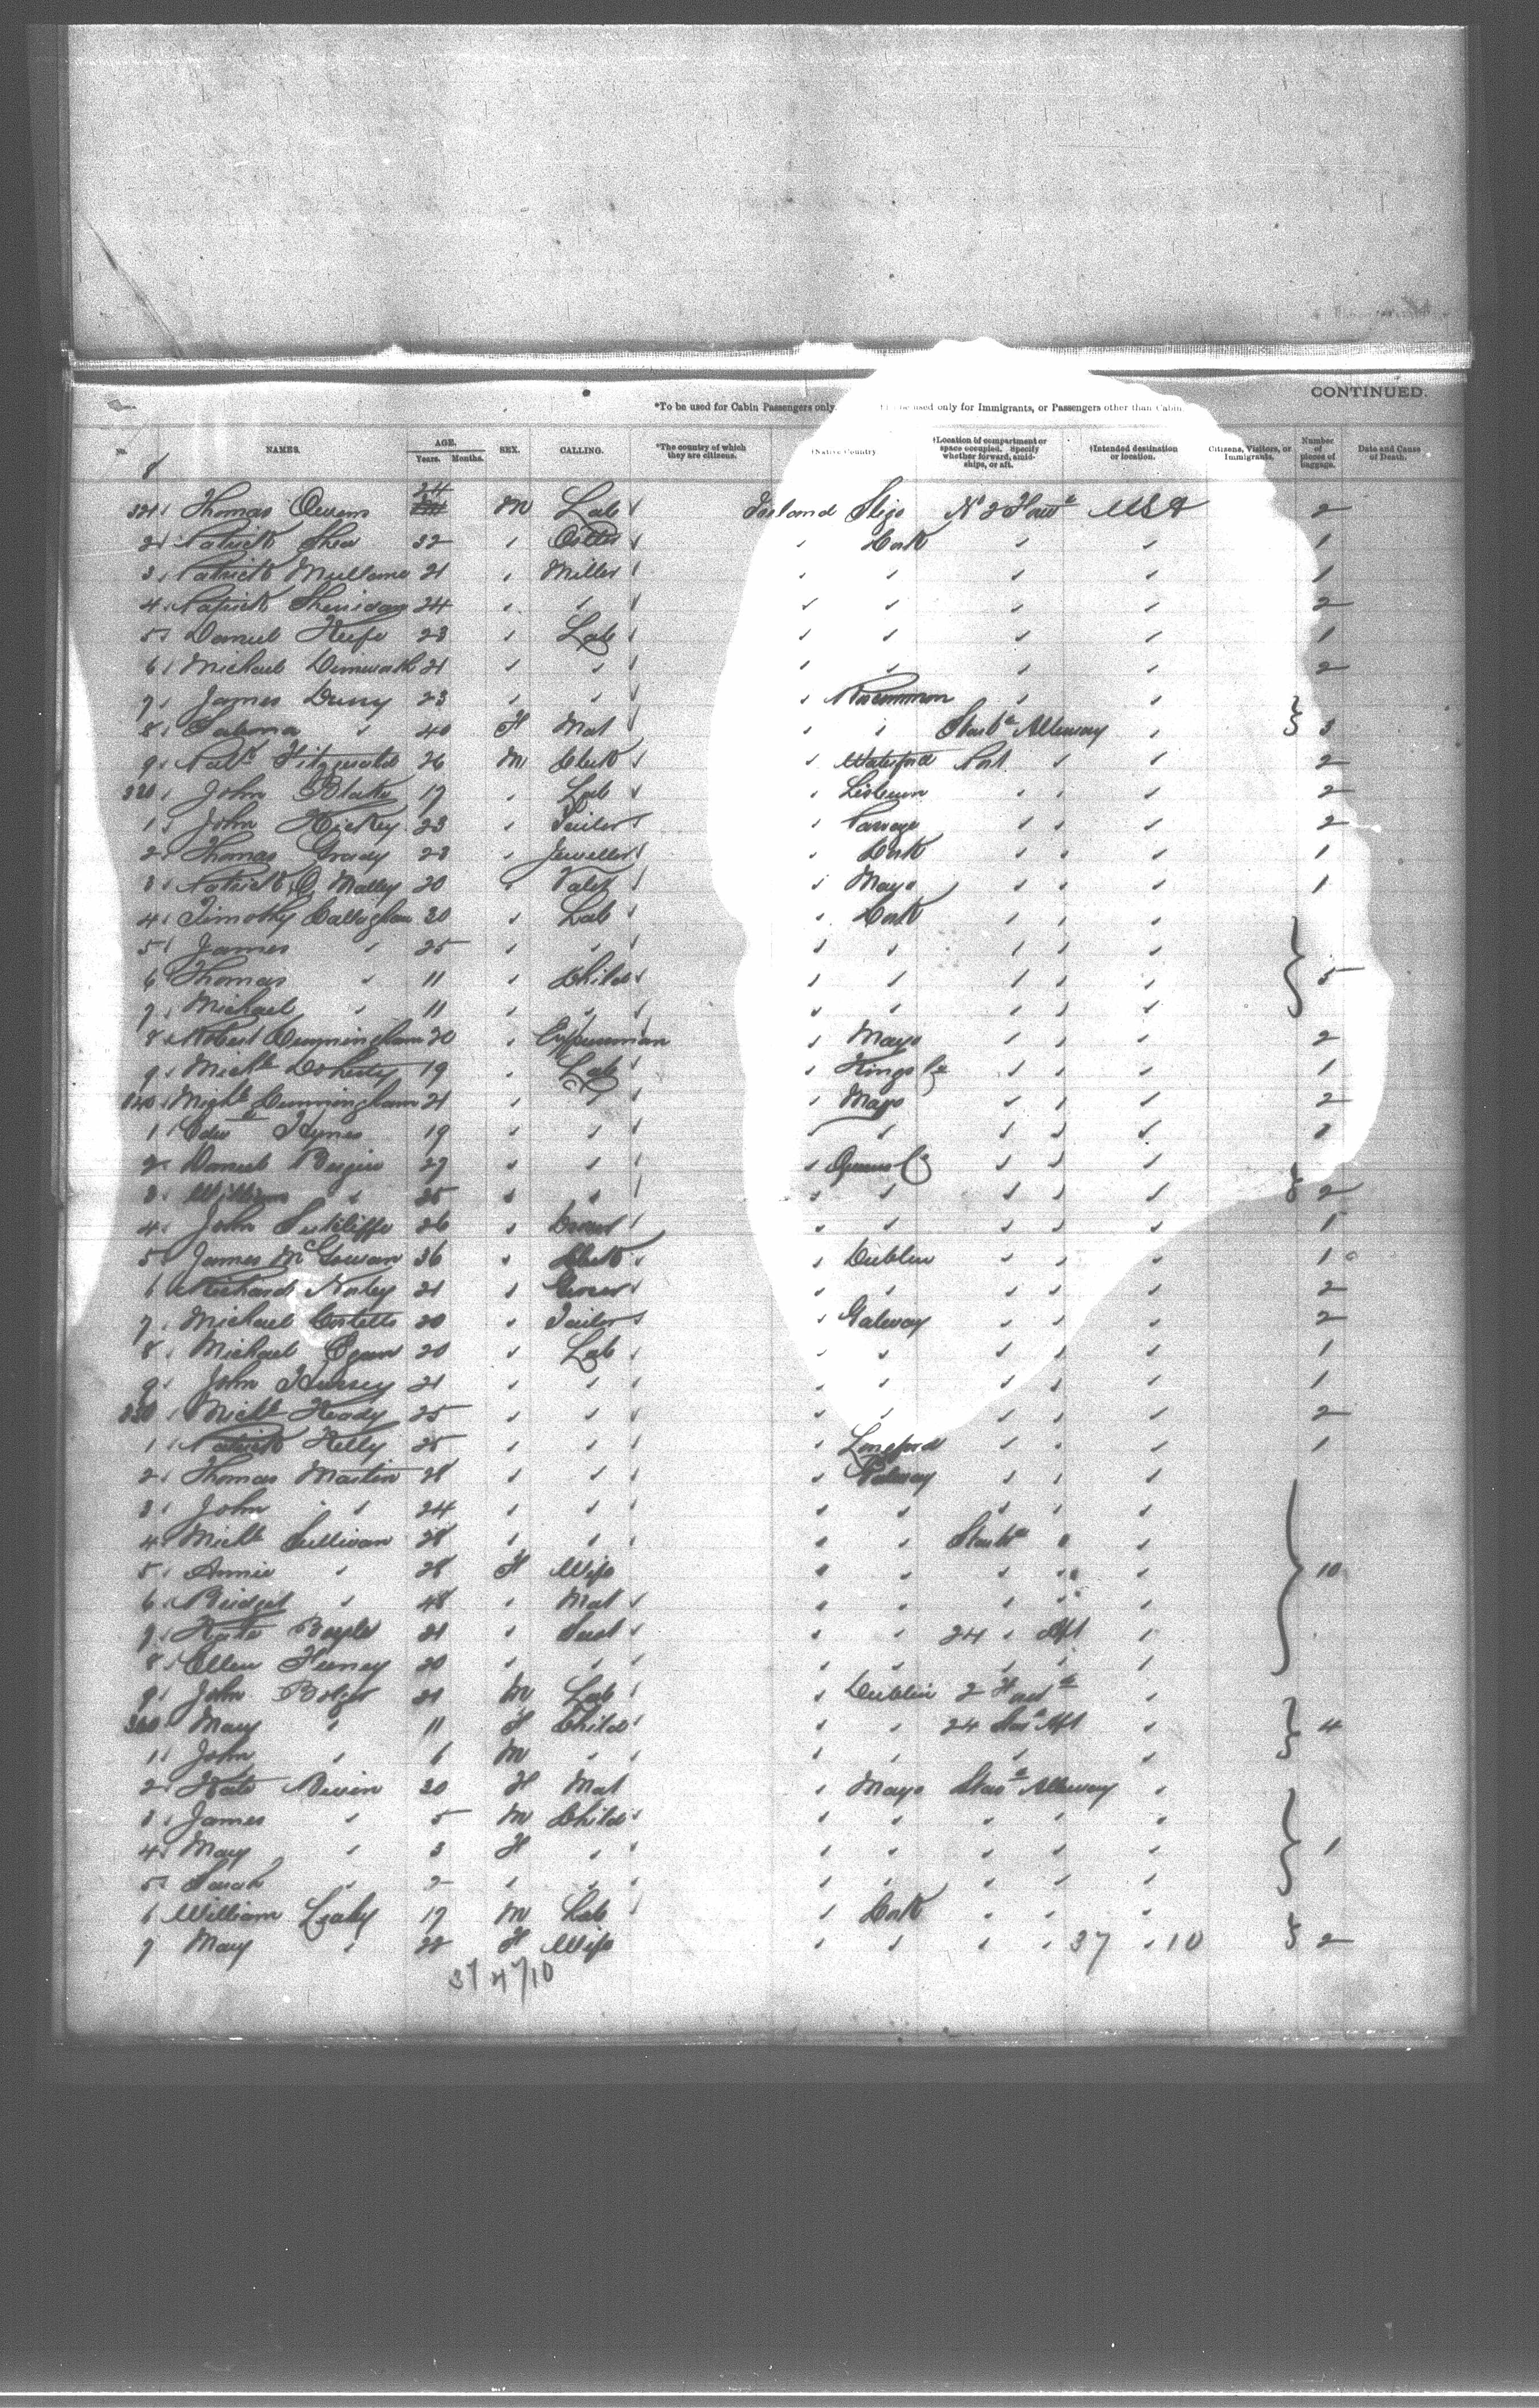 CONTINUED.
*To be used for Cabin Passengers only. used only for Immigrants, or Passengers other than Cabin
No. NAMES. AGE. Years. Months. SEX. CALLING. *The country of which they are citizens. †Native Country †Location of compartment or space occupied. Specify whether forward, amidships, or aft. †Intended destination or location. Citizens, Visitors, or Immigrants. Number of pieces of baggage. Date and Cause of Death.
8
321 Thomas Owens 24 M Lab Ireland Sligo No 2 Forwd USA 2
2 Patrick Shea 32 Cork 1
3 Patrick 21 Miller 1
4 Patrick Sheridan 24 2
5 Daniel Keefe 23 Lab 1
6 Michael 21 2
7 James 23 Roscommon
8 40 F Mat Starbd Alleway 3
9 Patk Fitzgerald 26 M Clerk Waterford Port 2
330 John Blake 17 Lab 2
1 John Hickey 23 Tailor 2
2 Thomas Grady 23 Jeweller Cork 1
3 Patrick O Malley 20 Valet Mayo 1
4 Timothy Callaghan 30 Lab Cork
5 James 25
6 Thomas 11 Child 5
7 Michael 11
8 Robert Cunningham 20 Mayo 2
9 Michl Doherty 19 Lab Kings Co 1
Michl Cunningham 21 Mayo 2
1 Edwd Hynes 19
2 Daniel Bergin 27 Queens Co
3 William 25 2
4 John Sutcliffe 26 1
5 James McGowan 36 Clerk Dublin 1
6 Richard 21 Grocer 2
7 Michael Costello 20 Tailor Galway 2
8 Michael Egan 20 Lab 1
9 John 21 1
Michl 25 2
1 Patrick Kelly 25 Longford 1
2 Thomas Martin 28 Galway
3 John 24
4 Michl Sullivan 28 Starbd
5 Annie 28 F Wife 10
6 Bridget 48 Mat
7 Kate Boyle 21 24 Aft
8 Ellen Feeney 20
9 John 21 M Lab Dublin 2 Forwd
360 Mary 11 F Child 24 Aft 4
1 John 6 M
2 Kate 30 F Mat Mayo Starbd Alleway
3 James 5 M Child
4 Mary 3 F 1
5 Sarah 2
6 William Leahy 17 M Lab Cork
7 Mary 22 F Wife 37 10 2
37 47/10